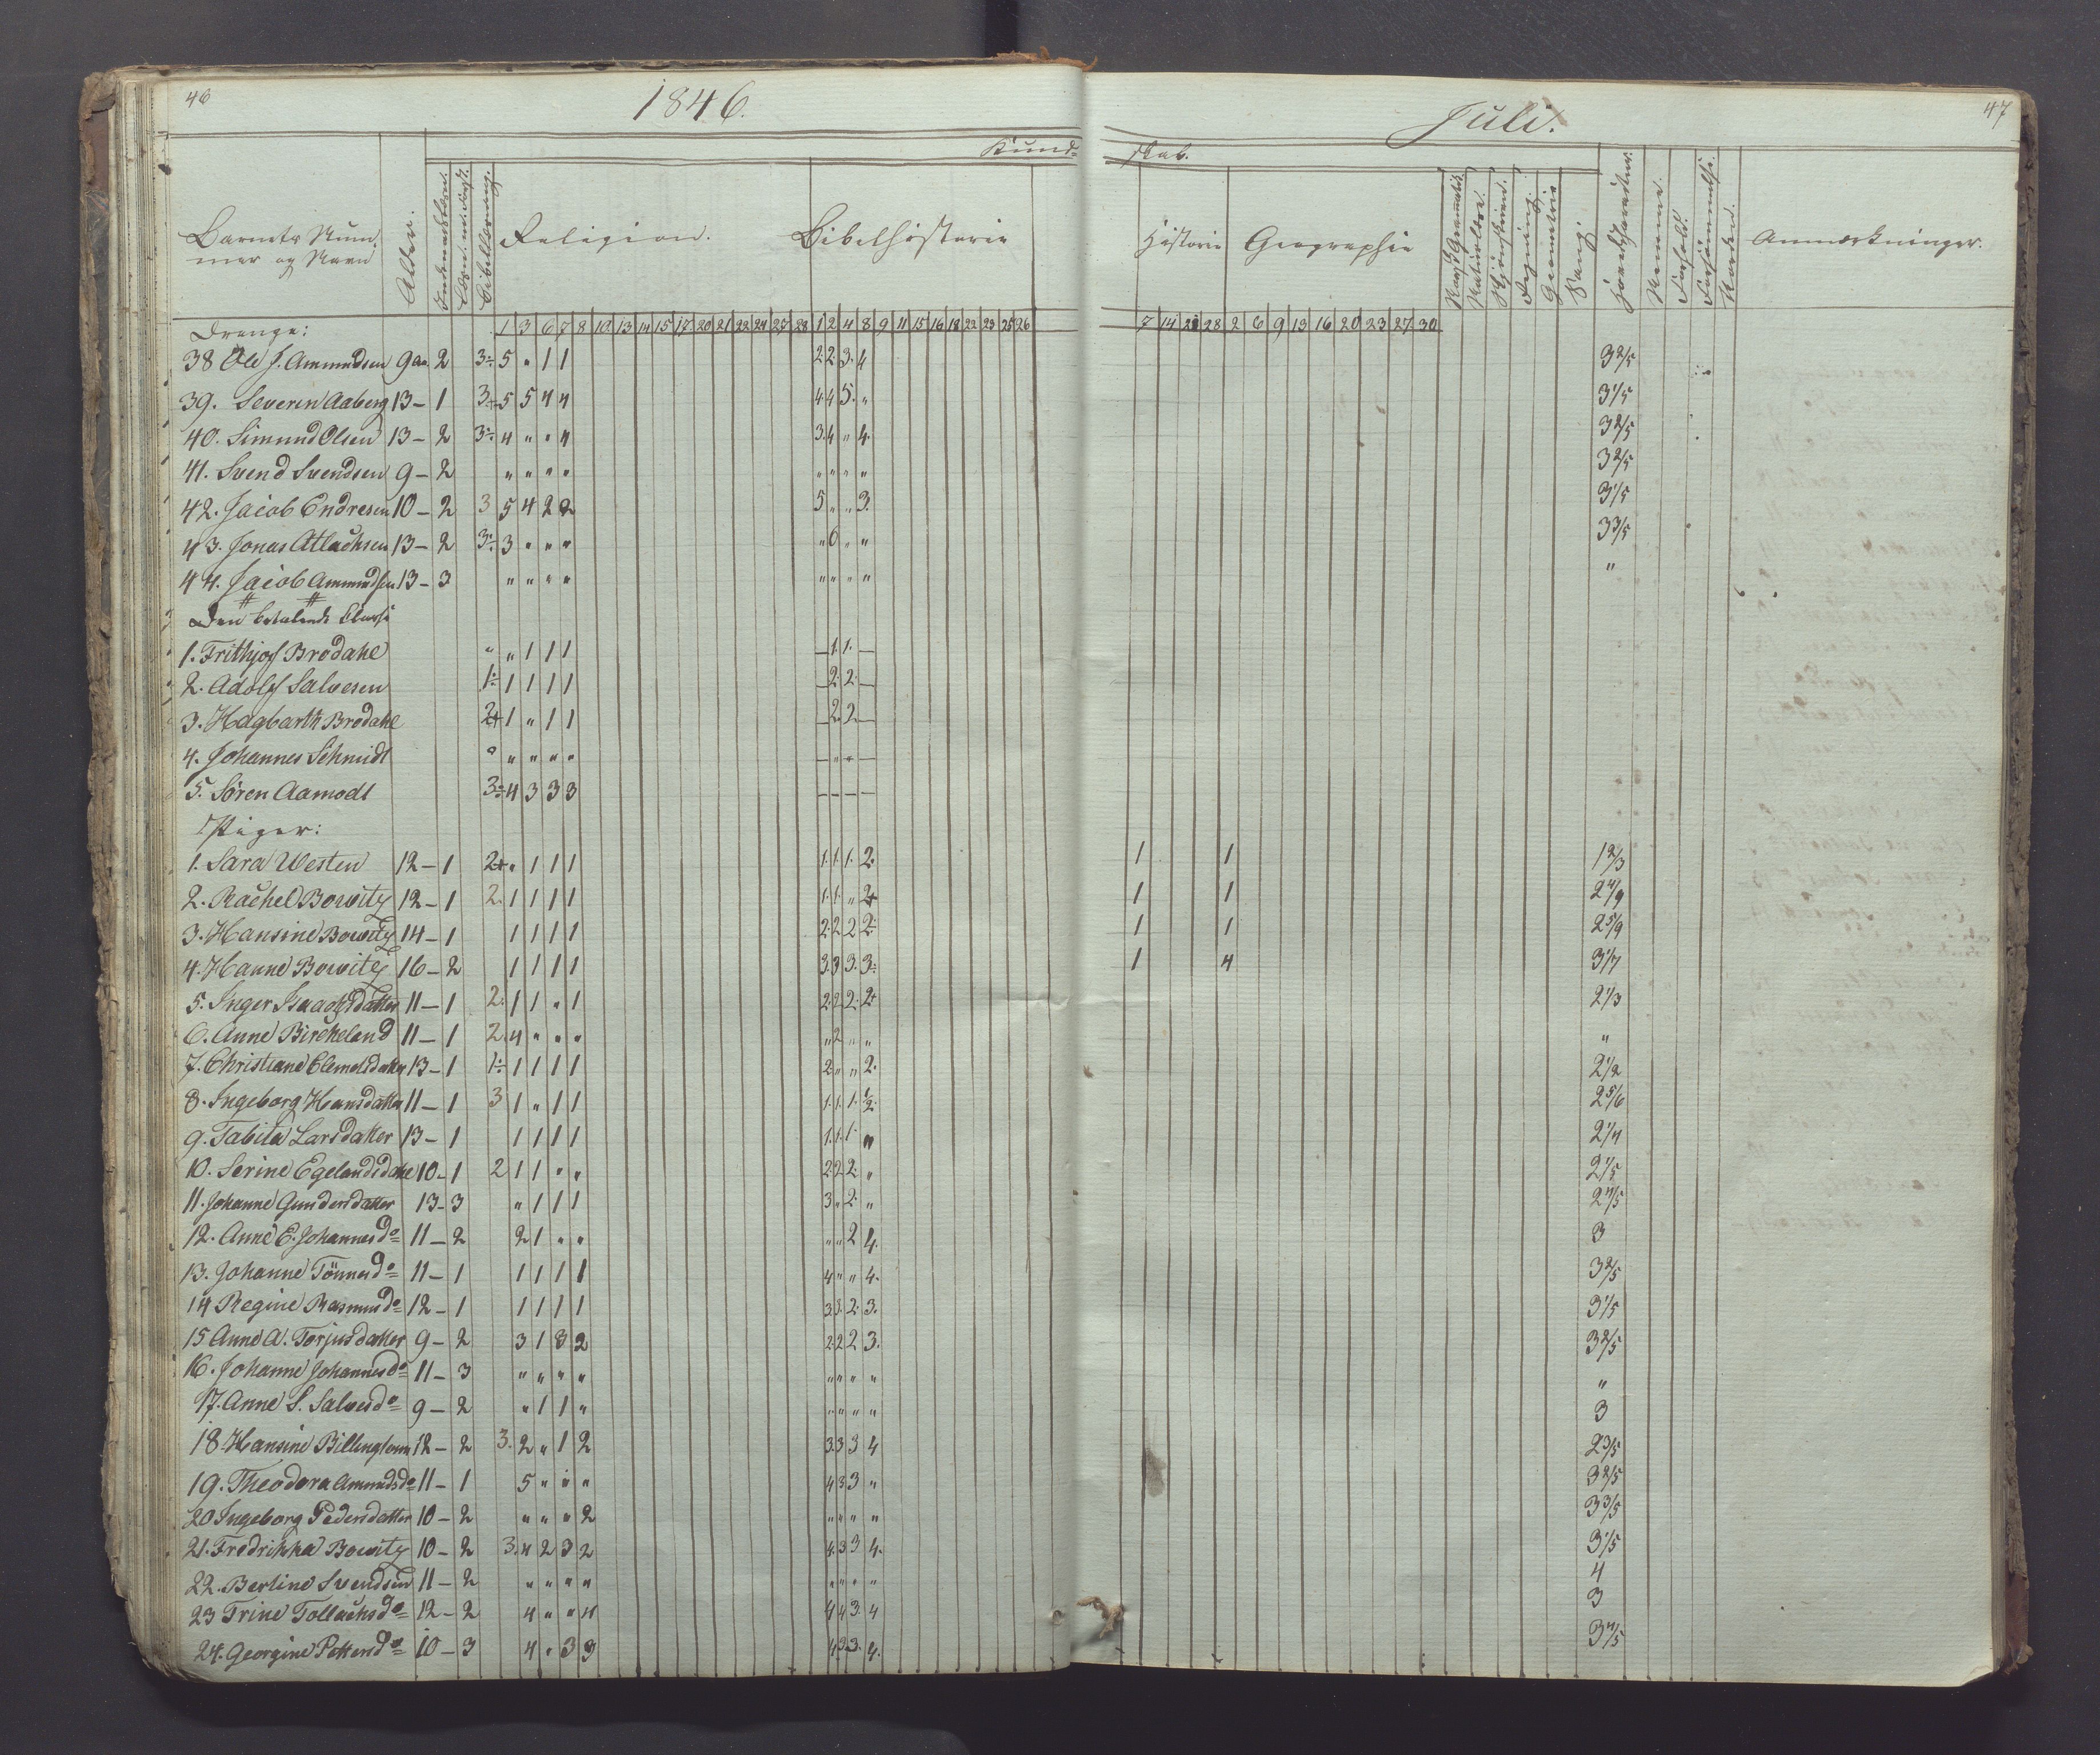 46
1846.
Juli.
47
Kund-
skab.
Barnets Num-
mer og Navn
Alder.
Religion.
Bibelhistorie
Historie
Geographie
Geometrie
Sang.
Anmærkninger.
Drenge:
1 3 6 7 8 10 13 14 15 17 20 21 22 24 27 28 1 2 4 8 9 11 15 16 18 22 23 25 26
7 14 21 28 2 6 9 13 16 20 23 27 30
38 Ole J. Ammundsen 9 aar 2 3÷ 5 " 1 1 2. 2. 3. 4 3 2/5
39. Severin Aaberg 13 – 1 3+ 5 5 4 4 4 4 5. " 3 1/5
40. Simund Olsen 13 – 2 3÷ 4 " " 4 3. 4 " 4. 3 2/5
41. Svend Svendsen 9 – 2 " " " " " " " " 3 2/5
42. Jacob Endresen 10 – 2 3 5 4 2 2 5 " " 3. 3 1/5
43. Jonas Atlachsen 13 – 2 3÷ 3 " " " " 6 " " 3 3/5
44. Jacob Ammundsen 13 – 3 " " " " " " " " "
Den betalende Classe
1. Frithjof Brodahl " " 1 1 1 — 1. 1. —
2. Adolf Salvesen 1÷ 1 1 1 1 — 2. 2. —
3. Hagbarth Brodahl 2+ 1 " 1 1 — 2. 2. —
4. Johannes Schmidt " " " " " — " " —
5. Sören Aamodt 3÷ 4 3 3 3 — — — —
Piger:
1. Sara Westen 12 – 1 2+ " 1 1 1 1. 1. 1. 2. 1 1 1 2/3
2. Rachel Bowitz 12 – 1 2. 1 1 1 1 1. 1. " 2+ 1 1 2 4/9
3. Hansine Bowitz 14 – 1 1 1 1 1 2. 2 2 2÷ 1 1 2 5/9
4. Hanne Bowitz 16 – 2 1 1 1 1 3. 3 3. 3÷ 1 4 3 1/7
5. Inger Isaachsdatter 11 – 1 2. 1 1 " 1 2. 2 2. 2+ 2 1/3
6. Anne Birkeland 11 – 1 2. 4 " " " " 2 " " "
7. Christiane Clemetsdatter 13 – 1 1÷ 1 1 1 1 2. " " 2. 2 1/2
8. Ingeborg Hansdatter 11 – 1 3 1 " 1 1 1. 1. 1. 1/2. 2 5/6
9. Tabita Larsdatter 13 – 1 1 1 1 1 1. 1. 1. " 2 1/4
10. Serine Egelandsdatter 10 – 1 2 1 1 " " 2. 2. 2. " 2 1/5
11. Johanne Gundersdatter 13 – 3 " 1 1 1 3. " 2. " 2 4/5
12. Anne E. Johannesd= 11 – 2 2 1 " " " " 2 4. 3
13. Johanne Tönnesd= 11 – 1 1 1 1 1 4. " " 4. 3 2/5
14 Regine Rasmusd= 12 – 1 1 1 1 1 3. 3. 2. 3. 3 1/5
15 Anne A. Torjusdatter 9 – 2 3 1 3 2 2. 2 2 3. 3 2/5
16. Johanne Johannesd= 11 – 3 " " " " " " " " "
17. Anne S. Salvesd= 9 – 2 " 1 1 " " " " " 3
18. Hansine Billingtonn 12 – 2 3. 2 " 1 2 3. 3 3 4 2 3/5
19. Theodora Amundsd= 11 – 1 5 " " " 4 3 3 " 3 2/5
20 Ingeborg Pedersdatter 10 – 2 " " " 2 " " " " 3 3/5
21. Fredrikka Bowitz 10 – 2 3. 4 2 3 2 4. 3 3 4. 3 1/5
22. Bertine Svendsen 11 – 2 " " " " " " " " 4
23 Trine Tollachsd= 12 – 2 4 " " 4 4 4 3. 4 3
24. Georgine Pettersd= 10 – 3 4 " 3 3 4. 3. 3. 4. 3 4/5